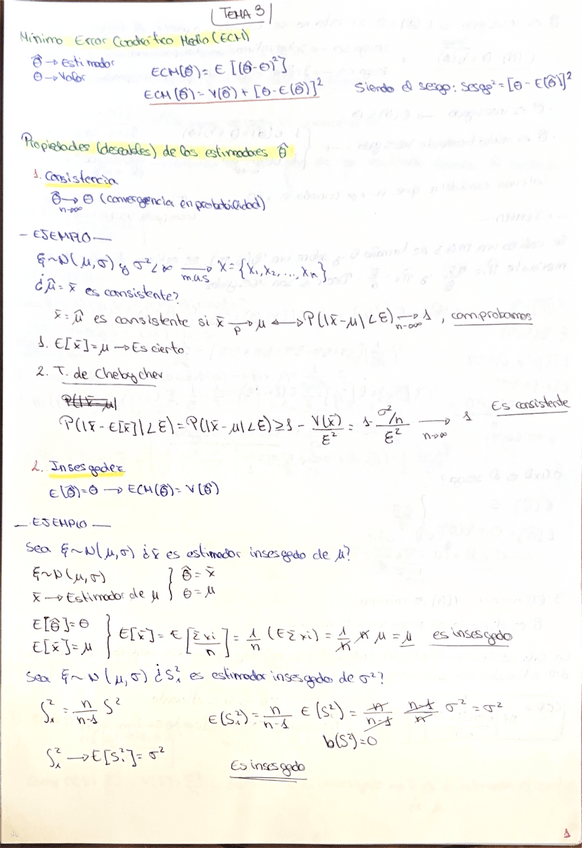 TEMA 3
Mínimo Error Cuadrático Medio (ECM)
θ̂ → Estimador
θ → Valor
ECM(θ̂) = E[(θ̂-θ)²]
ECM(θ̂) = V(θ̂) + [θ - E(θ̂)]²
Siendo el sesgo: Sesgo² = [θ - E(θ̂)]²
Propiedades (deseables) de los estimadores θ̂
1. Consistencia
θ̂ → θ (convergencia en probabilidad)
n→∞
- EJEMPLO -
ξ ~ N(μ, σ) y σ² < ∞ → mas X = {X₁, X₂, ..., Xn}
¿μ̂ = x̄ es consistente?
x̄ = μ̂ es consistente si x̄ →p μ ↔ P(|x̄-μ| < ε) → n→∞ 1, comprobamos
1. E[x̄] = μ → Es cierto
2. T. de Chebychev
P(|x̄-μ|
P(|x̄ - E[x̄]| < ε) = P(|x̄-μ| < ε) ≥ 1 - V(x̄)/ε² = 1 - (σ²/n)/ε² → n→∞ 1 Es consistente
2. Insesgadez
E(θ̂) = θ → ECM(θ̂) = V(θ̂)
- EJEMPLO -
Sea ξ ~ N(μ, σ) ¿x̄ es estimador insesgado de μ?
ξ ~ N(μ, σ)
x̄ → Estimador de μ
} θ̂ = x̄
θ = μ
E[θ̂] = θ
E[x̄] = μ
} E[x̄] = E[Σxi/n] = 1/n (EΣxi) = 1/n n μ = μ es insesgado
Sea ξ ~ N(μ, σ) ¿S₁² es estimador insesgado de σ²?
S₁² = n/n-1 S²
E(S₁²) = n/n-1 E(S²) = n/n-1 n-1/n σ² = σ²
b(S²) = 0
S₁² → E[S₁²] = σ²
Es insesgado
1